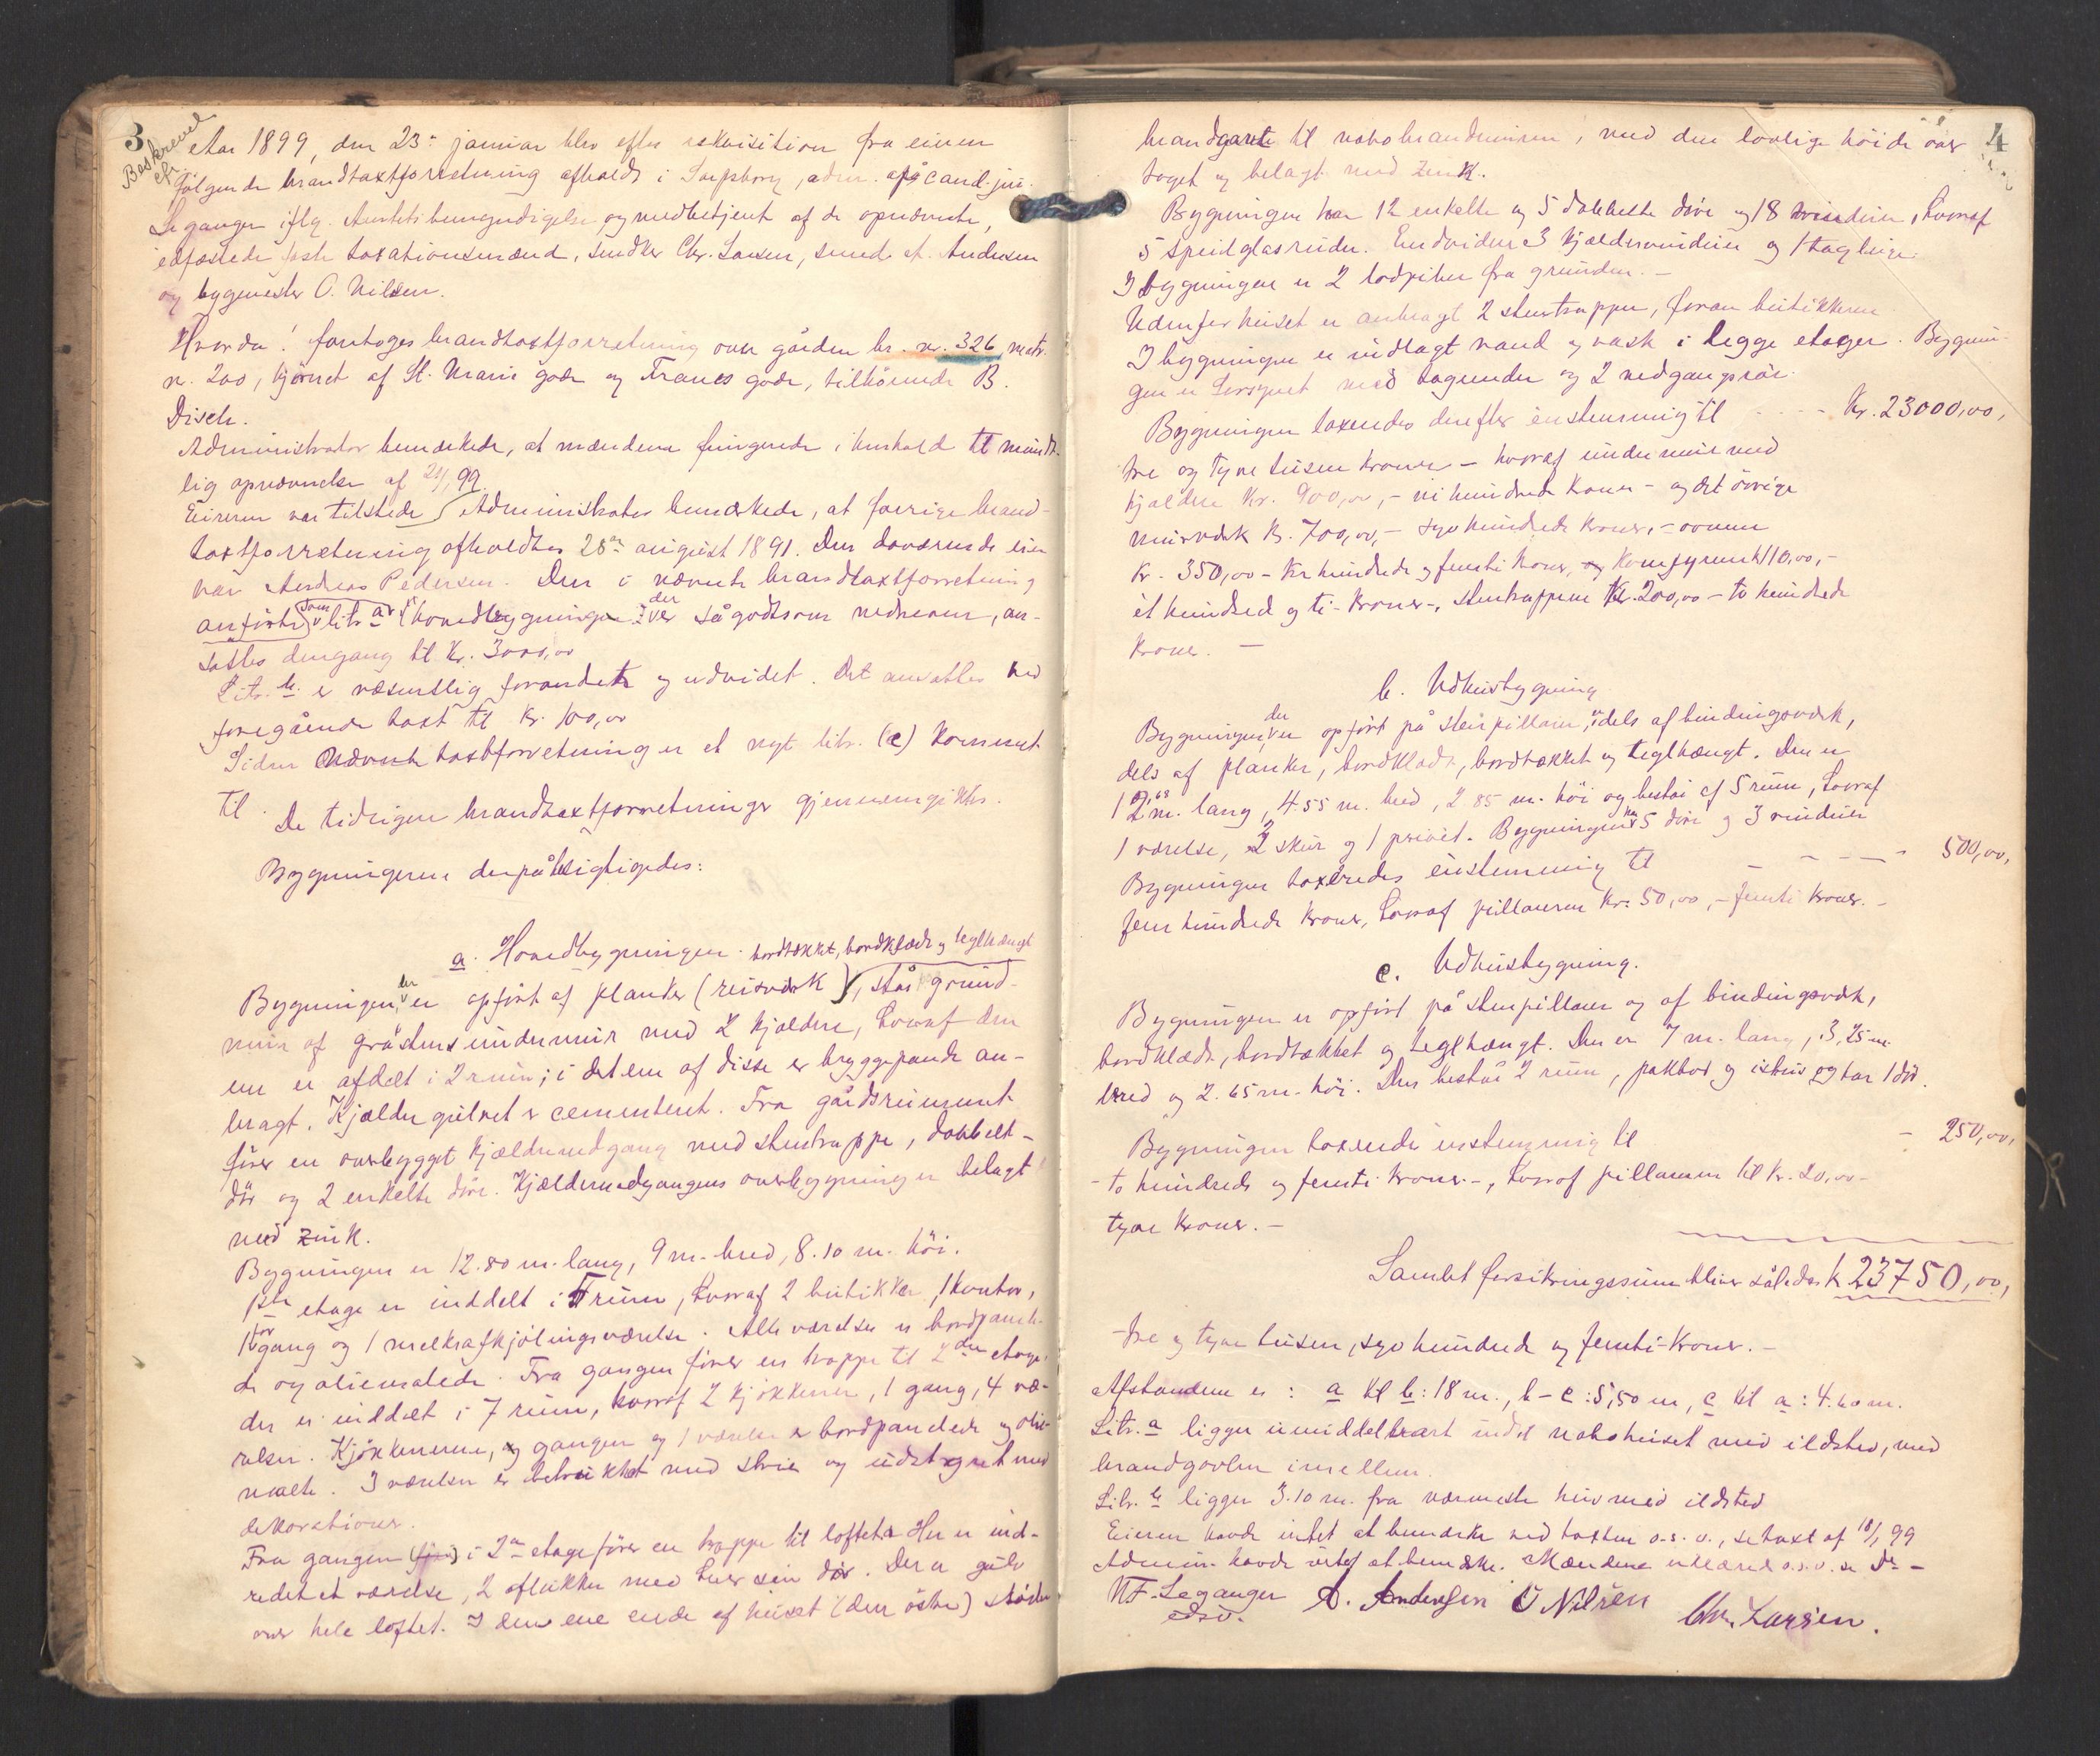 3
Beskrevet
efr
Aar 1899, den 23de januar blev efter rekvisition fra eieren
følgende brandtaxtforretning afholdt i Sarpsborg, adm. af cand. jur.
Leganger iflg. Amtets bemyndigelse og medbetjent af de opnævnte,
edfæstede faste taxationsmænd, snedker Chr. Larsen, smed A. Andersen
og bygmester O. Nilsen.
Hvorda! foretoges brandtaxtforretning over gården br. nr. 326, matr.
n. 200, hjørnet af St. Marie gade og Tranes gade, tilhørende B.
Disch.
Administrator bemærkede, at mændene fungerede i henhold til mundt-
lig opnævnelse af 21/1 99.
Eieren var tilstede. Administrator bemærkede, at forrige brand-
taxtforretning afholdtes 28de august 1891. Den daværende eier
var Andreas Pedersen. Den i nævnte brandtaxtforretning
anførte som litr. a (hovedbygningen) der er sågodtsom nedreven, an-
sattes dengang til Kr. 3000,00
Litr. b. er væsentlig forandret og udvidet. Det ansattes ved
foregående taxt til Kr. 100,00
Siden nævnte taxtforretning er et nyt litr. (c) kommet
til.
De tidligere brandtaxtforretninger gjennemgikkes.
Bygningerne derpå besigtigedes:
a. Hovedbygningen. bordtækket, bordklædt og teglhængt
Bygningen, der er opført af planker (reisværk), står grund-
mur af gråstens undermur med 2 kjældere, hvoraf den
ene er afdelt i 2 rum; i det ene af disse er bryggepande an-
bragt. Kjældergulvet er cementeret. Fra gårdsrummet
fører en overbygget kjældernedgang med stentrappe, dobbelt-
dør og 2 enkelte døre. Kjældernedgangens overbygning er belagt
med zink.
Bygningen er 12.80 m. lang, 9 m. bred, 8.10 m. høi.
1ste etage er inddelt i 5 rum, hvoraf 2 butikker, 1 kontor,
1 forgang og 1 melkeafkjølingsværelse. Alle værelser er bordpanele-
de og oliemalede. Fra gangen fører en trappe til 2den etage,
der er inddelt i 7 rum, hvoraf 2 kjøkkener, 1 gang, 4 væ-
relser. Kjøkkenerne, gangen og 1 værelse er bordpanelede og olie-
malte. 3 værelser er betrukket med strie og udstyret med
dekorationer.
Fra gangen i 2den etage fører en trappe til loftet. Her er ind-
redet et værelse, 2 aflukker med hver sin dør. Der er gulv
over hele loftet. I den ene ende af huset (den østre) støder
4
brandgavle til nabobrandmuren, med den lovlige høide over
taget og belagt med zink.
Bygningen har 12 enkelte og 5 dobbelte døre og 18 vinduer, hvoraf
5 speilglasruder. Endvidere 3 kjældervinduer og 1 tagluge.
I bygningen er 2 rødpiber fra grunden. -
Udenfor huset er anbragt 2 stentrapper, foran butikkerne
I bygningen er indlagt vand og vask i begge etager. Bygnin-
gen er forsynet med tagrender og 2 nedgangsrør.
Bygningen taxeredes derefter enstemmig til - - - - Kr. 23000,00,
tre og tyve tusen kroner - hvoraf undermur med
kjældere Kr. 900,00, - ni hundrede kroner - og det øvrige
murværk Kr. 700,00, - syv hundrede kroner, - ovnene
Kr. 350,00 - tre hundrede og femti kroner, og komfyrerne k 110,00, -
et hundred og ti - kroner -, stentrapperne Kr. 200,00 - to hundrede
kroner. -
b. Udhusbygning
Bygningen, der er opført på stenpillarer, er dels af bindingsværk,
dels af planker, bordklædt, bordtækket og teglhængt. Den er
12,68 m. lang, 4.55 m. bred, 2 85 m. høi og består af 5 rum, hvoraf
1 værelse, 2 skur og 1 privet. Bygningen har 5 døre og 3 vinduer
Bygningen taxeredes enstemmig til - - - - 500,00,
fem hundrede kroner, hvoraf pillarerne Kr. 50,00, - femti kroner. -
c. Udhusbygning.
Bygningen er opført på stenpillarer og af bindingsværk,
bordklædt, bordtækket og teglhængt. Den er 7 m. lang, 3,25 m.
bred og 2.65 m. høi. Den består 2 rum, pakbod og ishus og har 1 dør.
Bygningen taxeredes enstemmig til - 250,00,
- to hundrede og femti kroner. -, hvoraf pillarerne til Kr. 20,00 -
tyve kroner. -
Samlet forsikringssum bliver således k 23750,00,
tre og tyve tusen, syv hundrede og femti - kroner. -
Afstandene er: a til b: 18 m., b - c: 5,50 m, c til a: 4.60 m.
Litr. a ligger umiddelbart indtil nabohuset med ildsted, med
brandgavlen imellem.
Litr. b ligger 3.10 m. fra nærmeste hus med ildsted
Eieren havde intet at bemærke ved taxten o.s.v., se taxt af 18/1 99
Admin. havde intet at bemærke. Mændene erklærede o.s.v. se do -
Leganger A. Andersen O Nilsen Chr. Larsen.
edsv.